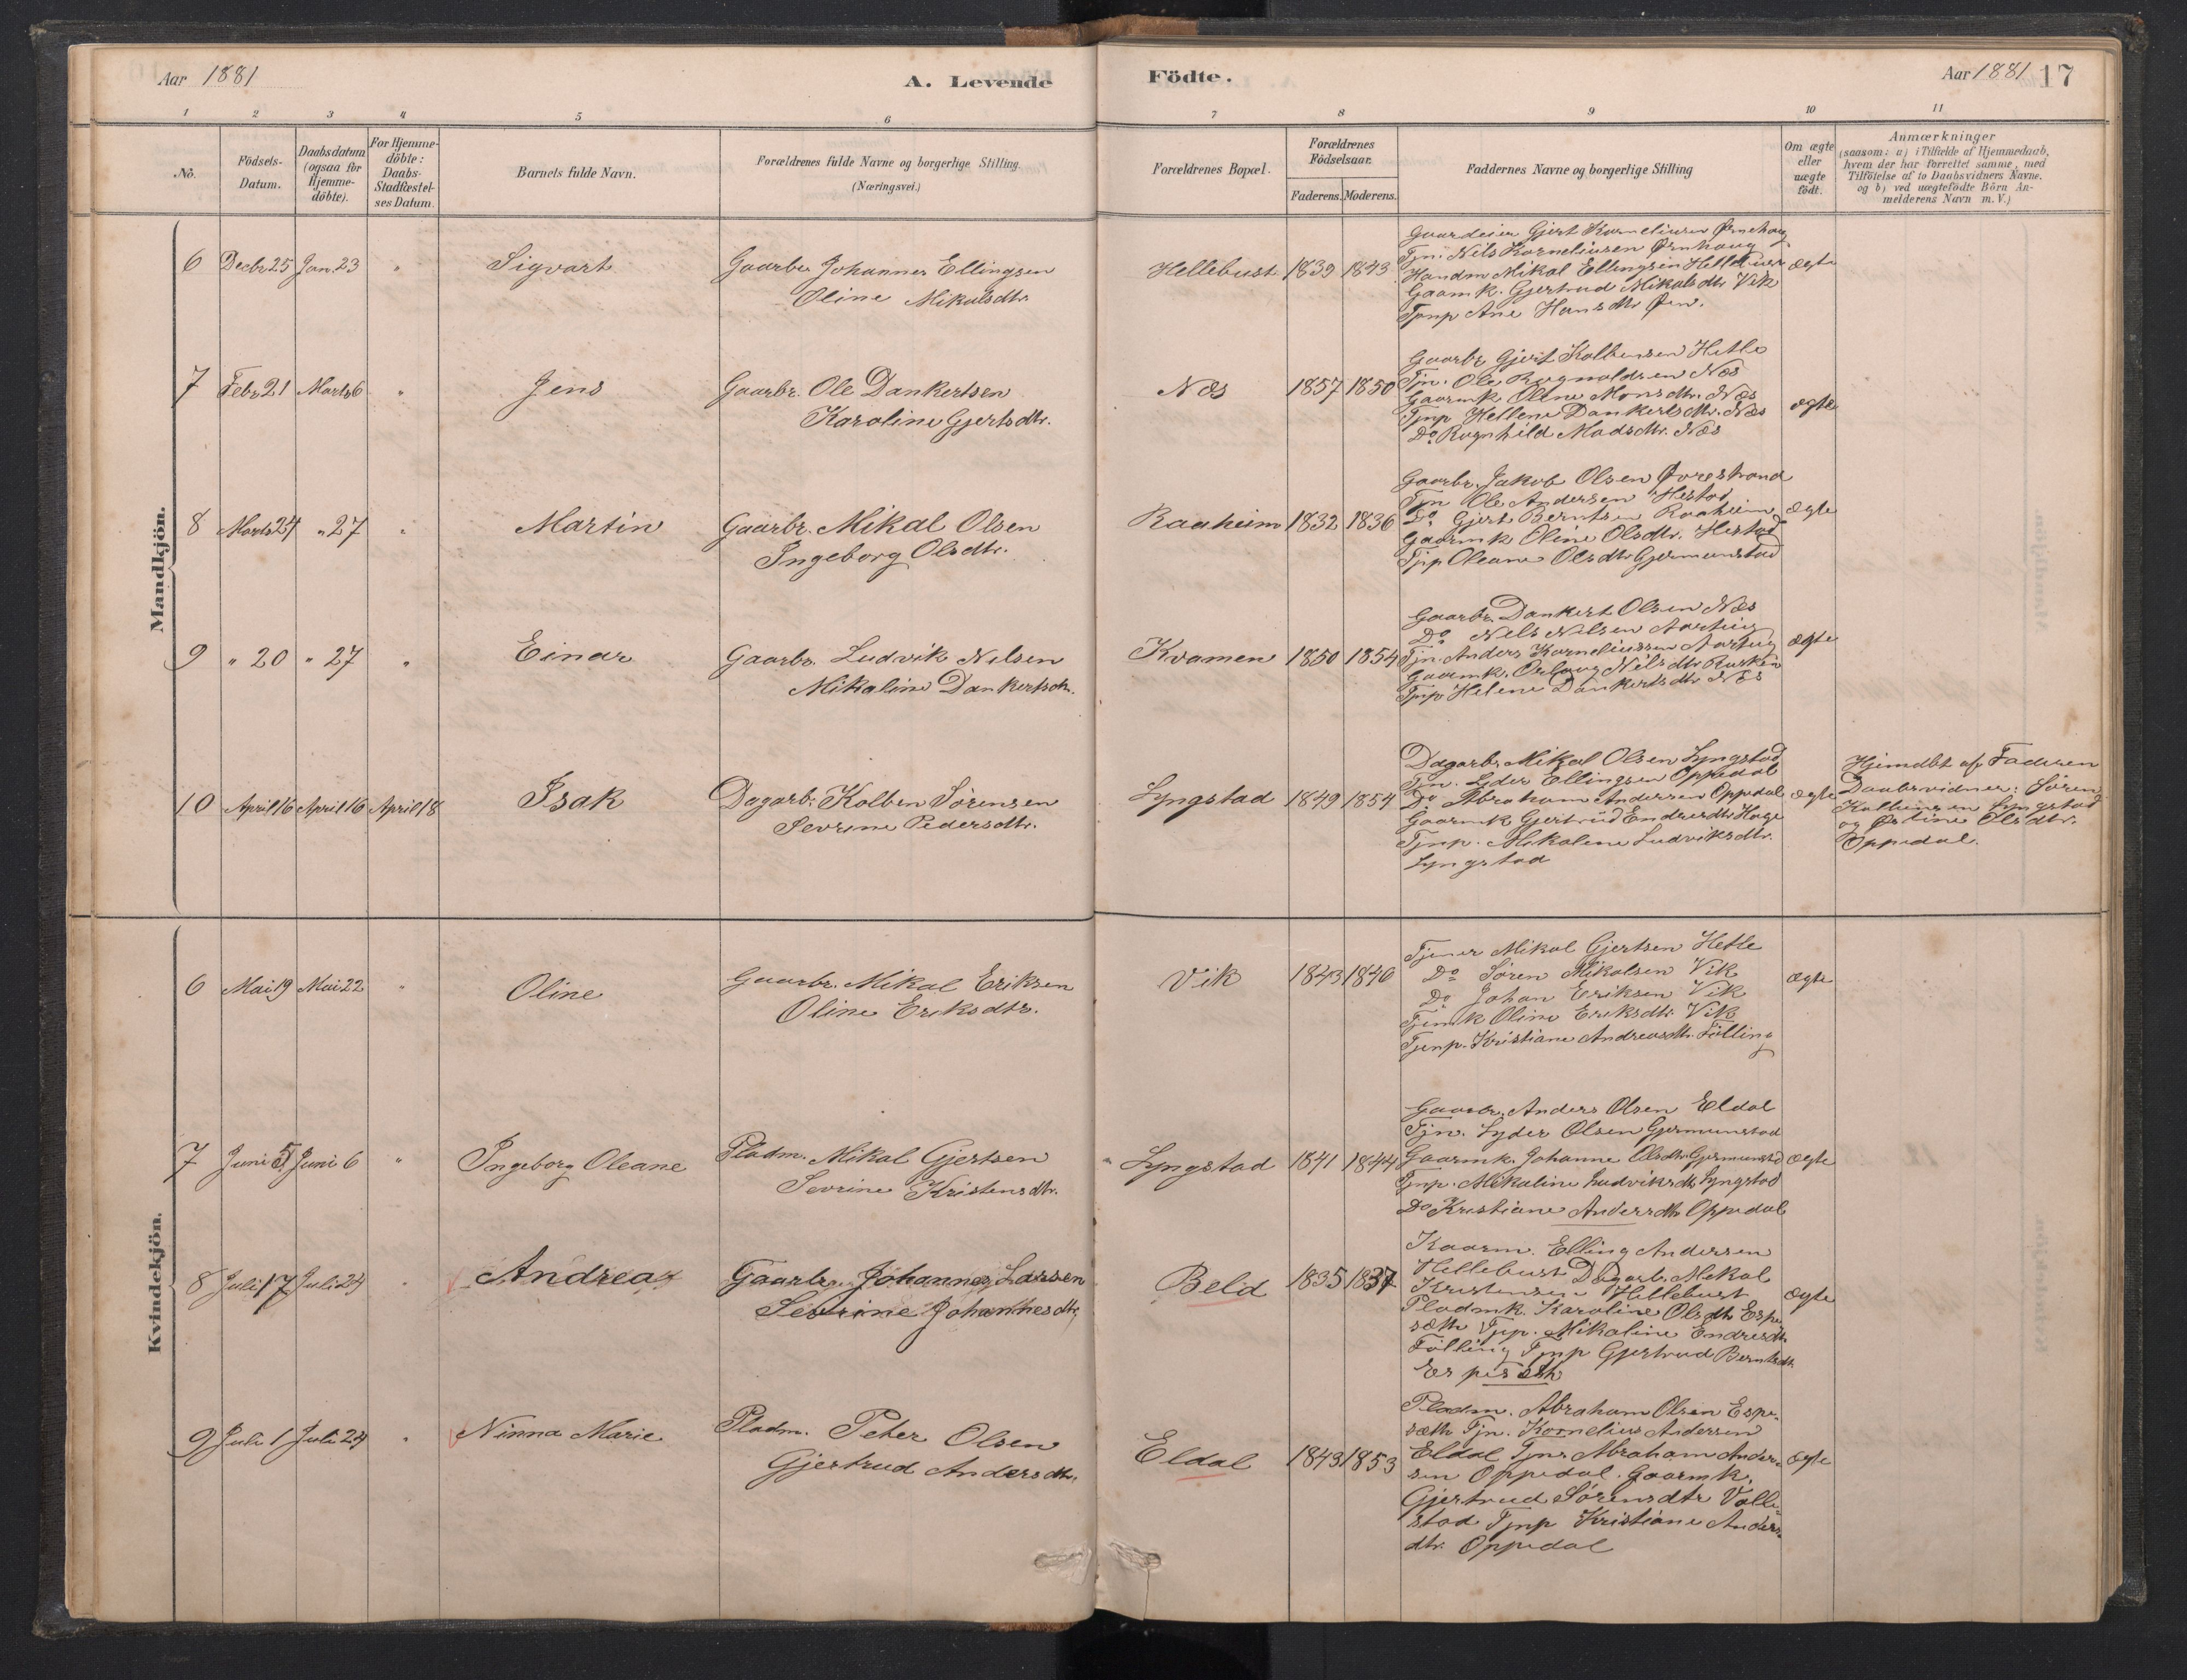 Aar 1881
A. Levende
Födte.
Aar 1881
17
1 2 3 4 5 6 7 8 9 10 11
No.
Födsels-
Datum.
Daabsdatum
(ogsaa for
Hjemme-
döbte).
For Hjemme-
döbte:
Daabs-
Stadfæstel-
ses Datum.
Barnets fulde Navn.
Forældrenes fulde Navne og borgerlige Stilling.
(Næringsvei.)
Forældrenes Bopæl.
Forældrenes
Födselsaar.
Faderens.
Moderens.
Faddernes Navne og borgerlige Stilling
Om ægte
eller
uægte
födt.
Anmærkninger
(saasom: a) i Tilfælde af Hjemmedaab,
hvem der har forrettet samme, med
Tilföielse af to Daabsvidners Navne.
og b) ved uægtefödte Börn An-
melderens Navn m. V.)
Mandkjön.
6 Decbr 25 Jan. 23 " Sigvart
Gaarbr. Johannes Ellingsen
Oline Mikalsdtr.
Hellebust 1839 1843
Gaardeier Gjert Korneliusen Ørnehaug
Tjn. Nils Korneliusen Ørnhaug
Handm Mikal Ellingsen Hellebust
Gaamk. Gjertrud Mikalsdtr Vik
Tjnp Ane Hansdtr Øen.
ægte
7 Febr 21 Marts 6 " Jens
Gaarbr. Ole Dankertsen
Karoline Gjertsdtr.
Næs 1857 1850
Gaarbr Gjert Kolbensen Hetle
Tjn. Ole Ragnvaldsen Næs
Gaarmk Oline Monsdtr. Næs
Tjnp Hellene Dankertsdtr. Næs
Do Ragnhild Madsdtr. Næs
ægte
8 Marts 24 " 27 " Martin
Gaarbr. Mikal Olsen
Ingeborg Olsdtr.
Raaheim 1832 1836
Gaarbr. Jakob Olsen Øvrestrand
Tjn Ole Andersen Hestad
Do Gjert Berntsen Raaheim
Gaarmk Oline Olsdtr. Hestad
Tjnp Oleane Olsdtr Gjermunstad
ægte
9 " 20 " 27 " Einar
Gaarbr. Ludvik Nilsen
Mikaline Dankertsdtr.
Kvamen 1850 1854
Gaarbr. Dankert Olsen Næs
Do Nils Nilsen Aarteig
Tjn. Anders Korneliussen Aarteig
Gaarmk. Nilsdtr
Tjnp Helene Dankertsdtr Næs
ægte
10 April 16 April 16 April 18 Isak
Dagarb. Kolben Sørensen
Sevrine Pedersdtr.
Lyngstad 1849 1854
Dagarb. Mikal Olsen Lyngstad
Tjn. Lyder Ellingsen Oppedal
Do Abraham Andersen Oppedal
Gaarmk Gjertrud Endresdtr Hage
Tjnp. Mikaline Ludviksdtr.
Lyngstad
ægte
Hjemdbt af Faderen
Daabsvidner: Søren
Kolbensen Lyngstad
og Olsdtr.
Oppedal.
Kvindekjön.
6 Mai 19 Mai 22 " Oline
Gaarbr. Mikal Eriksen
Oline Eriksdtr.
Vik 1843 1846
Tjener Mikal Gjertsen Hetle
Do Søren Mikalsen Vik
Do Johan Eriksen Vik
Oline Eriksdtr. Vik
Tjenp. Kristiane Andreasdtr. Følling
ægte
7 Juni 5 Juni 6 " Ingeborg Oleane
Pladm. Mikal Gjertsen
Sevrine Kristensdtr.
Lyngstad 1841 1844
Gaarbr. Anders Olsen Eldal
Tjn. Lyder Olsen Gjermunstad
Gaarmk. Johanne Olsdtr Gjermunstad
Tjnp. Mikaline Ludviksdtr Lyngstad
Do Kristiane Andersdtr Oppedal
ægte
8 Juli 17 Juli 24 " Andrea
Gaarbr. Johannes Larsen
Sevrine Johannesdtr.
Beld 1835 1837
Kaarm. Elling Andersen
Hellebust Dagarb. Mikal
Kristensen Hellebust
Pladmk. Karoline Olsdtr Espe-
sæth Tjnp. Mikaline Endresdtr.
Følling Tjnp Gjertrud Berntsdtr.
Espesæth
ægte
9 Juli 1 Juli 24 " Ninna Marie
Pladm. Peter Olsen
Gjertrud Andersdtr.
Eldal 1843 1853
Pladm. Abraham Olsen Espe-
sæth Tjn. Kornelius Andersen
Eldal Tjn. Abraham Ander-
sen Oppedal. Gaarmk.
Gjertrud Sørensdtr Valle-
stad Tjnp Kristiane Anders-
dtr. Oppedal
ægte